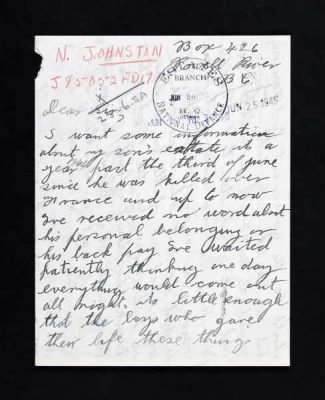 N. JOHNSTON
Box 426
Powell River
B.C.
BRANCH
JUN
NATIONAL DEFENCE
JUN 25 1945
Dear Sir
I want some information
about my son's estate it a
year past the third of June
since he was killed over
France and up to now
I've received no word about
his personal belonging or
his back pay I've waited
patiently thinking one day
everything would come out
all right, its little enough
that the boys who gave
their life these thing